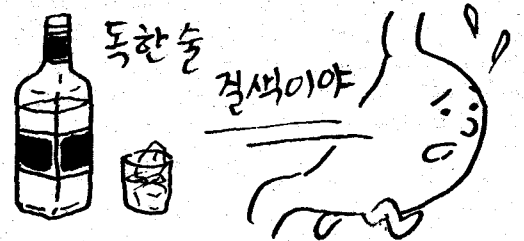 독한 술
걸색이야